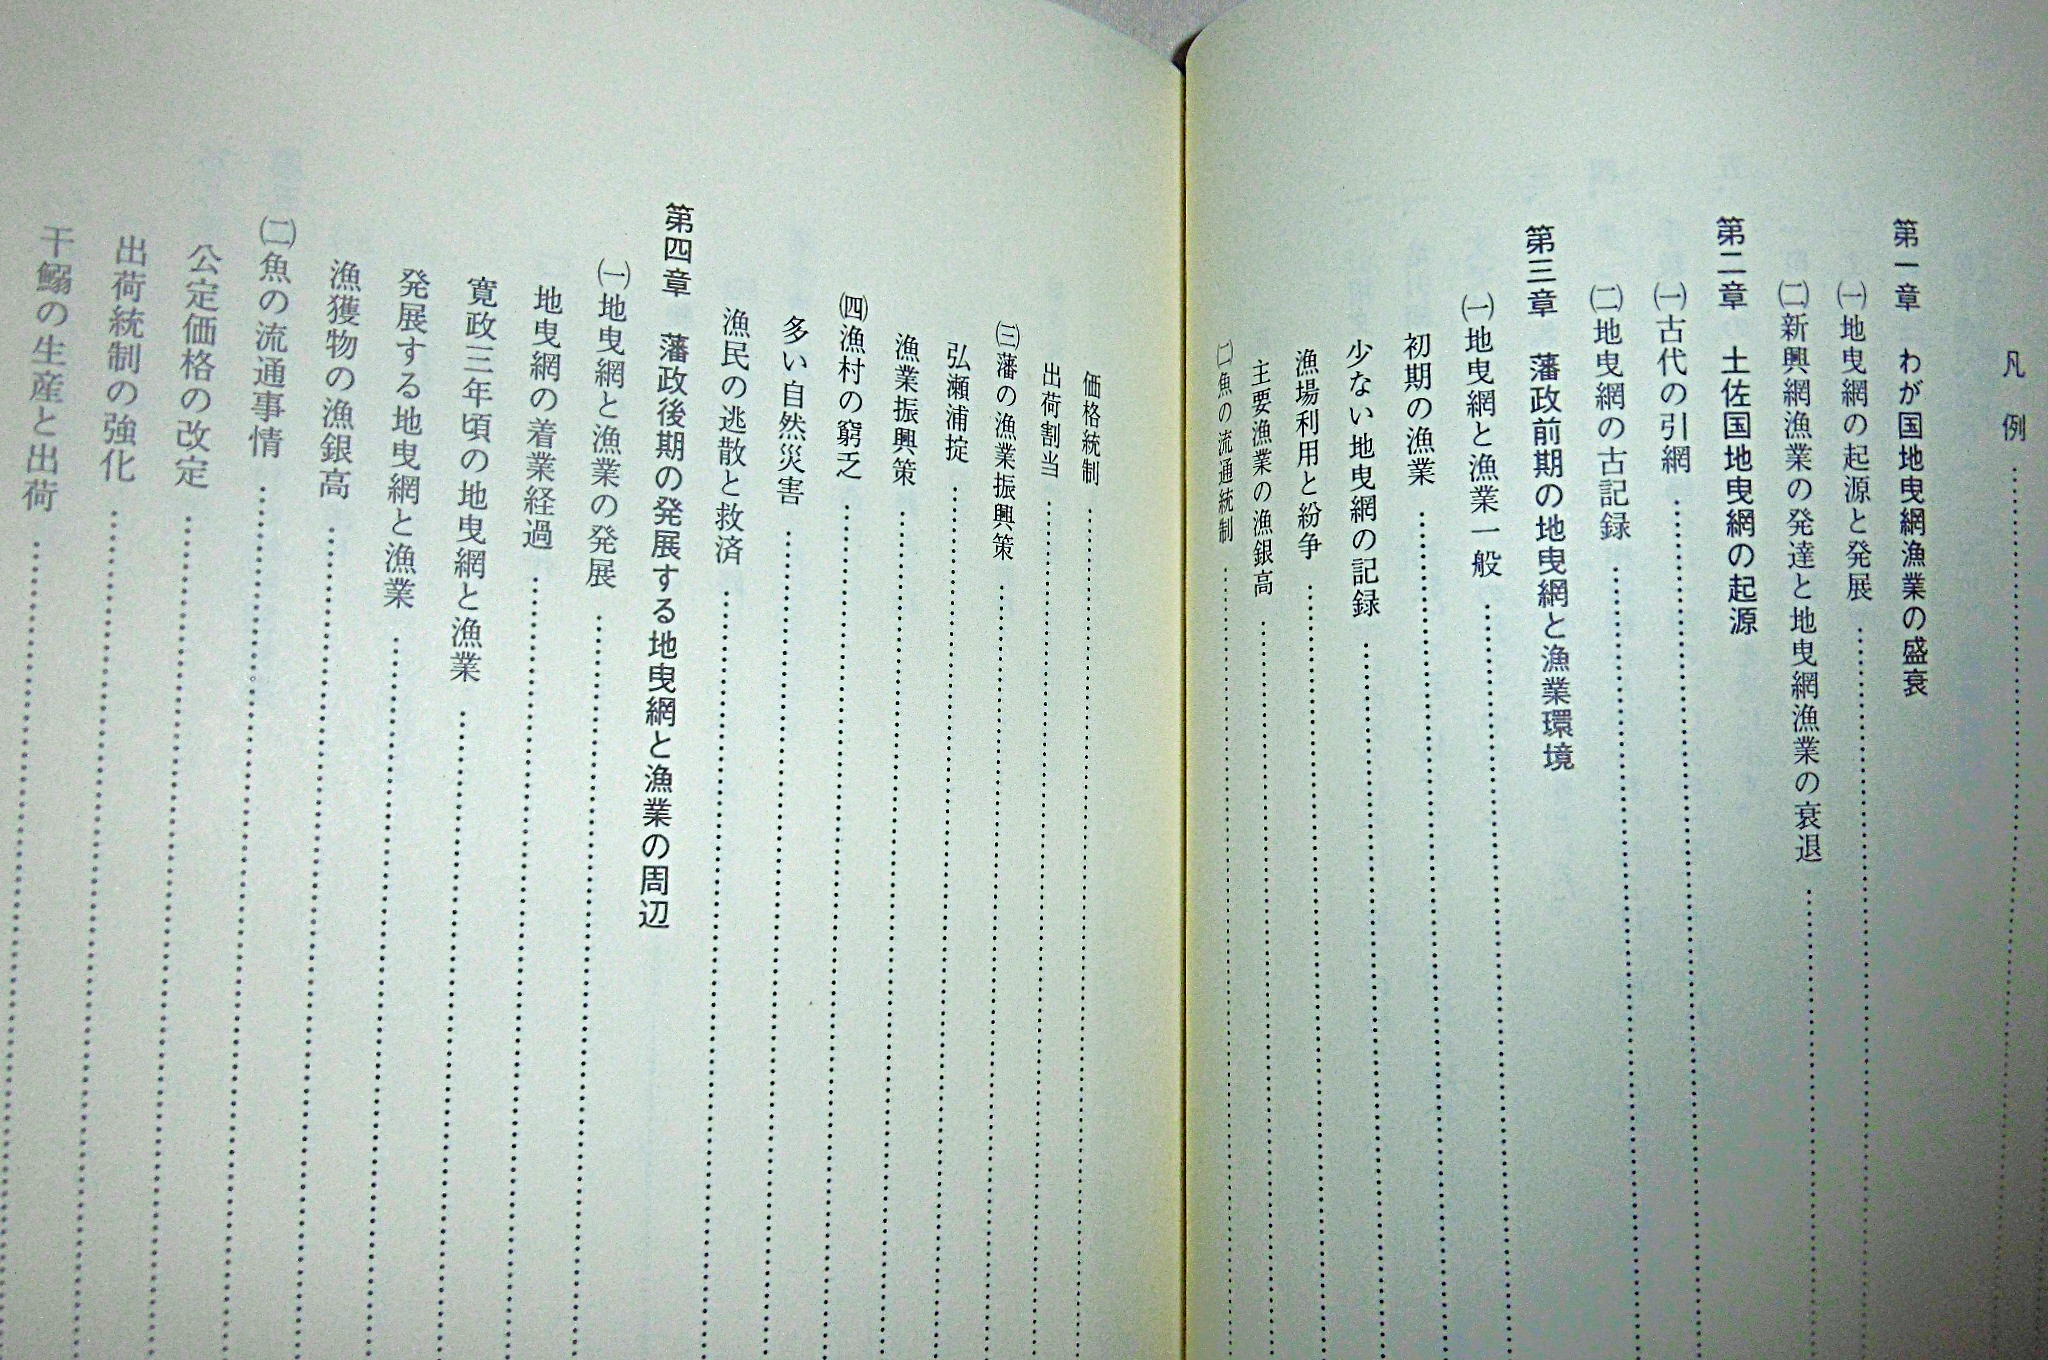 凡例
第一章 わが国地曳網漁業の盛衰
㈠地曳網の起源と発展
㈡新興網漁業の発達と地曳網漁業の衰退
第二章 土佐国地曳網の起源
㈠古代の引網
㈡地曳網の古記録
第三章 藩政前期の地曳網と漁業環境
㈠地曳網と漁業一般
初期の漁業
少ない地曳網の記録
漁場利用と紛争
主要漁業の漁銀高
㈡魚の流通統制
価格統制
出荷割当
㈢藩の漁業振興策
弘瀬浦掟
漁業振興策
㈣漁村の窮乏
多い自然災害
漁民の逃散と救済
第四章 藩政後期の発展する地曳網と漁業の周辺
㈠地曳網と漁業の発展
地曳網の着業経過
寛政三年頃の地曳網と漁業
発展する地曳網と漁業
漁獲物の漁銀高
㈡魚の流通事情
公定価格の改定
出荷統制の強化
干鰯の生産と出荷